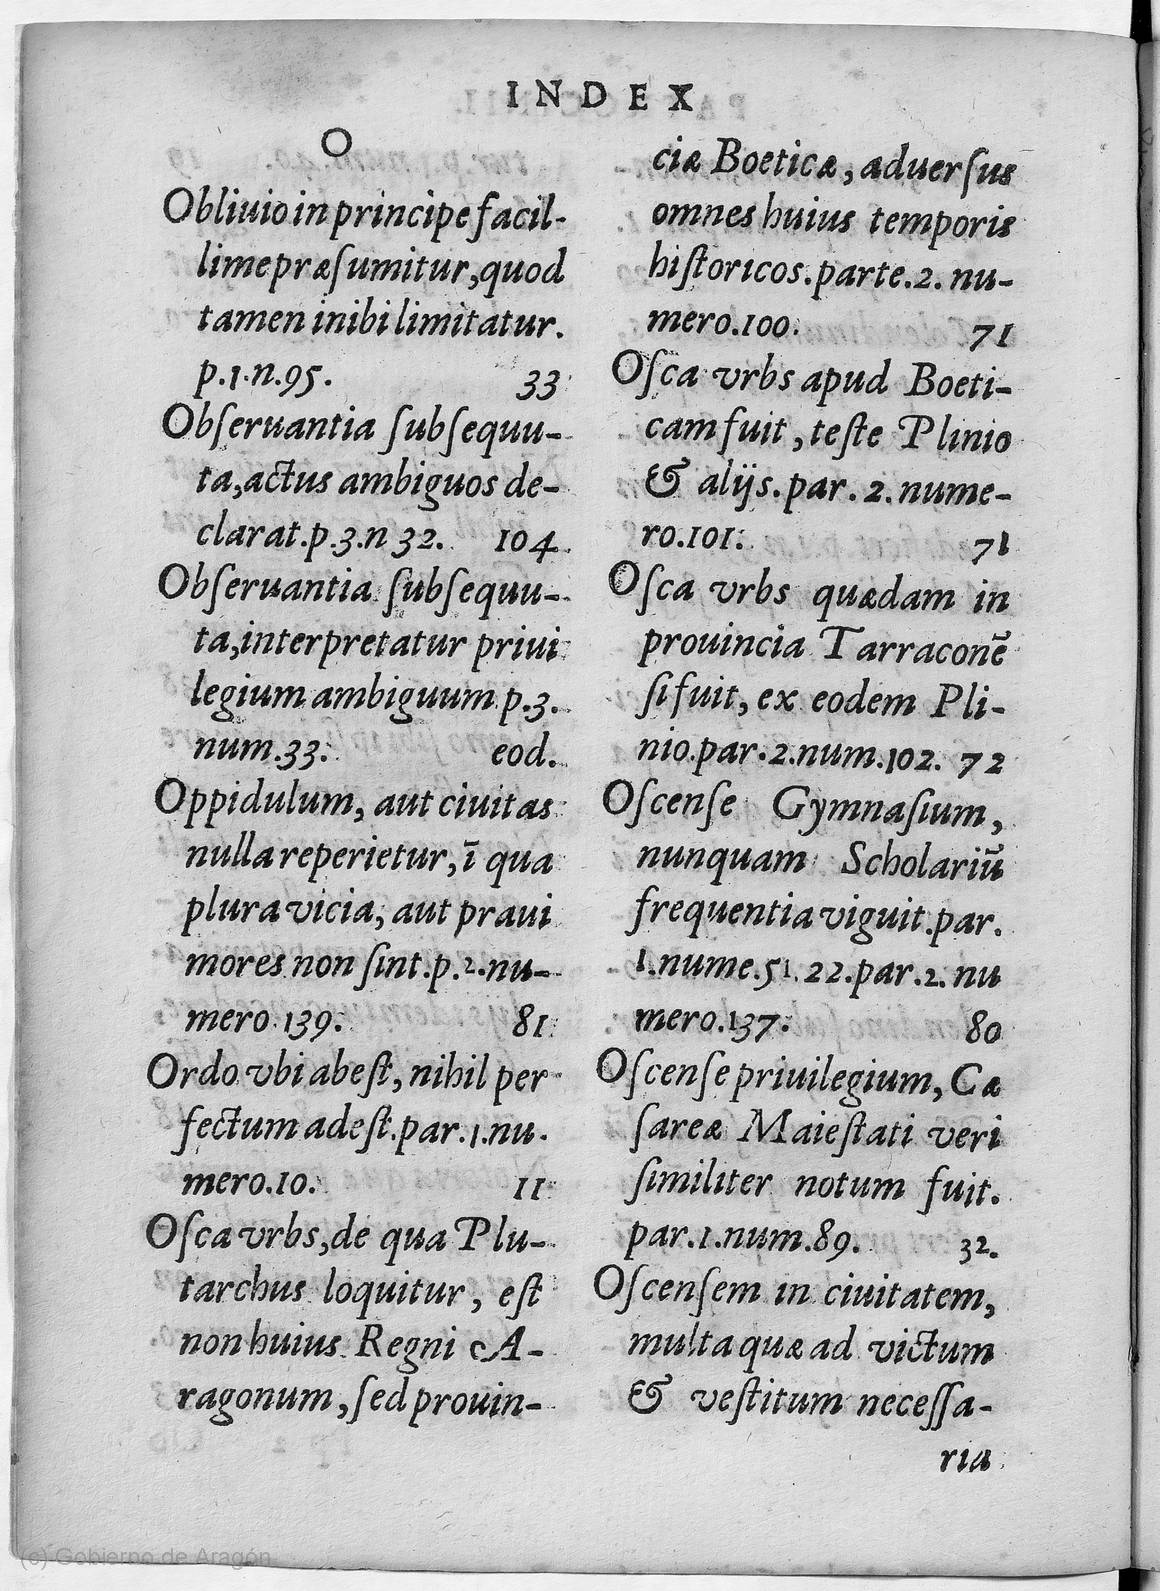 INDEX
O
Obliuio in principe facil-
lime præſumitur, quod
tamen inibi limitatur.
p.1.n.95. 33
Obſeruantia ſubſequu-
ta, actus ambiguos de-
clarat.p.3.n 32. 104
Obſeruantia ſubſequu-
ta, interpretatur priui
legium ambiguum p.3.
num.33. eod.
Oppidulum, aut ciuitas
nulla reperietur, ī qua
plura vicia, aut praui
mores non ſint.p.2.nu-
mero 139. 81
Ordo vbi abeſt, nihil per
fectum adeſt.par.1.nu.
mero.10. 11
Oſca vrbs, de qua Plu-
tarchus loquitur, eſt
non huius Regni A-
ragonum, ſed prouin-
ciæ Boeticæ, aduerſus
omnes huius temporis
hiſtoricos.parte.2. nu-
mero.100. 71
Oſca vrbs apud Boeti-
cam fuit, teſte Plinio
& alijs.par.2.nume-
ro.101. 71
Oſca vrbs quædam in
prouincia Tarraconē
ſi fuit, ex eodem Pli-
nio.par.2.num.102. 72
Oſcenſe Gymnaſium,
nunquam Scholariū
frequentia viguit.par.
1.nume.51.22.par.2. nu
mero.137. 80
Oſcenſe priuilegium, Cæ
ſareæ Maieſtati veri
ſimiliter notum fuit.
par.1.num.89. 32.
Oſcenſem in ciuitatem,
multa quæ ad victum
& veſtitum neceſſa-
ria
(c) Gobierno de Aragón